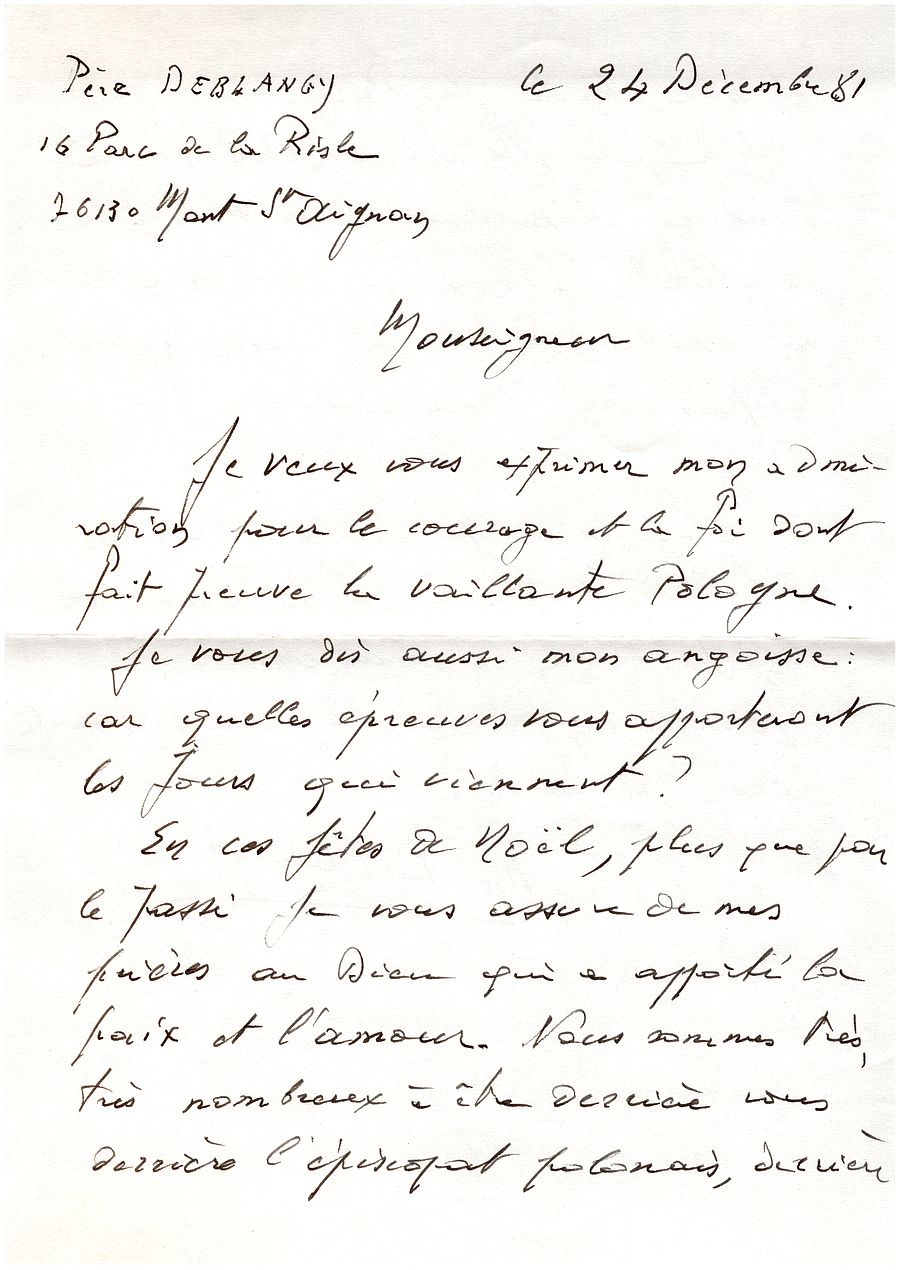 Père DEBLANGY
le 24 Décembre 81
16 Parc de la Risle
76130 Mont St Aignan
Monseigneur
Je veux vous exprimer mon admi-
ration pour le courage et la foi dont
fait preuve la vaillante Pologne.
Je vous dis aussi mon angoisse :
car quelles épreuves vous apporteront
les jours qui viennent ?
En ces fêtes de Noël, plus que par
le passé je vous assure de mes
prières au Dieu qui a apporté la
paix et l'amour. Nous sommes très,
très nombreux à être derrière vous
derrière l'épiscopat polonais, derrière